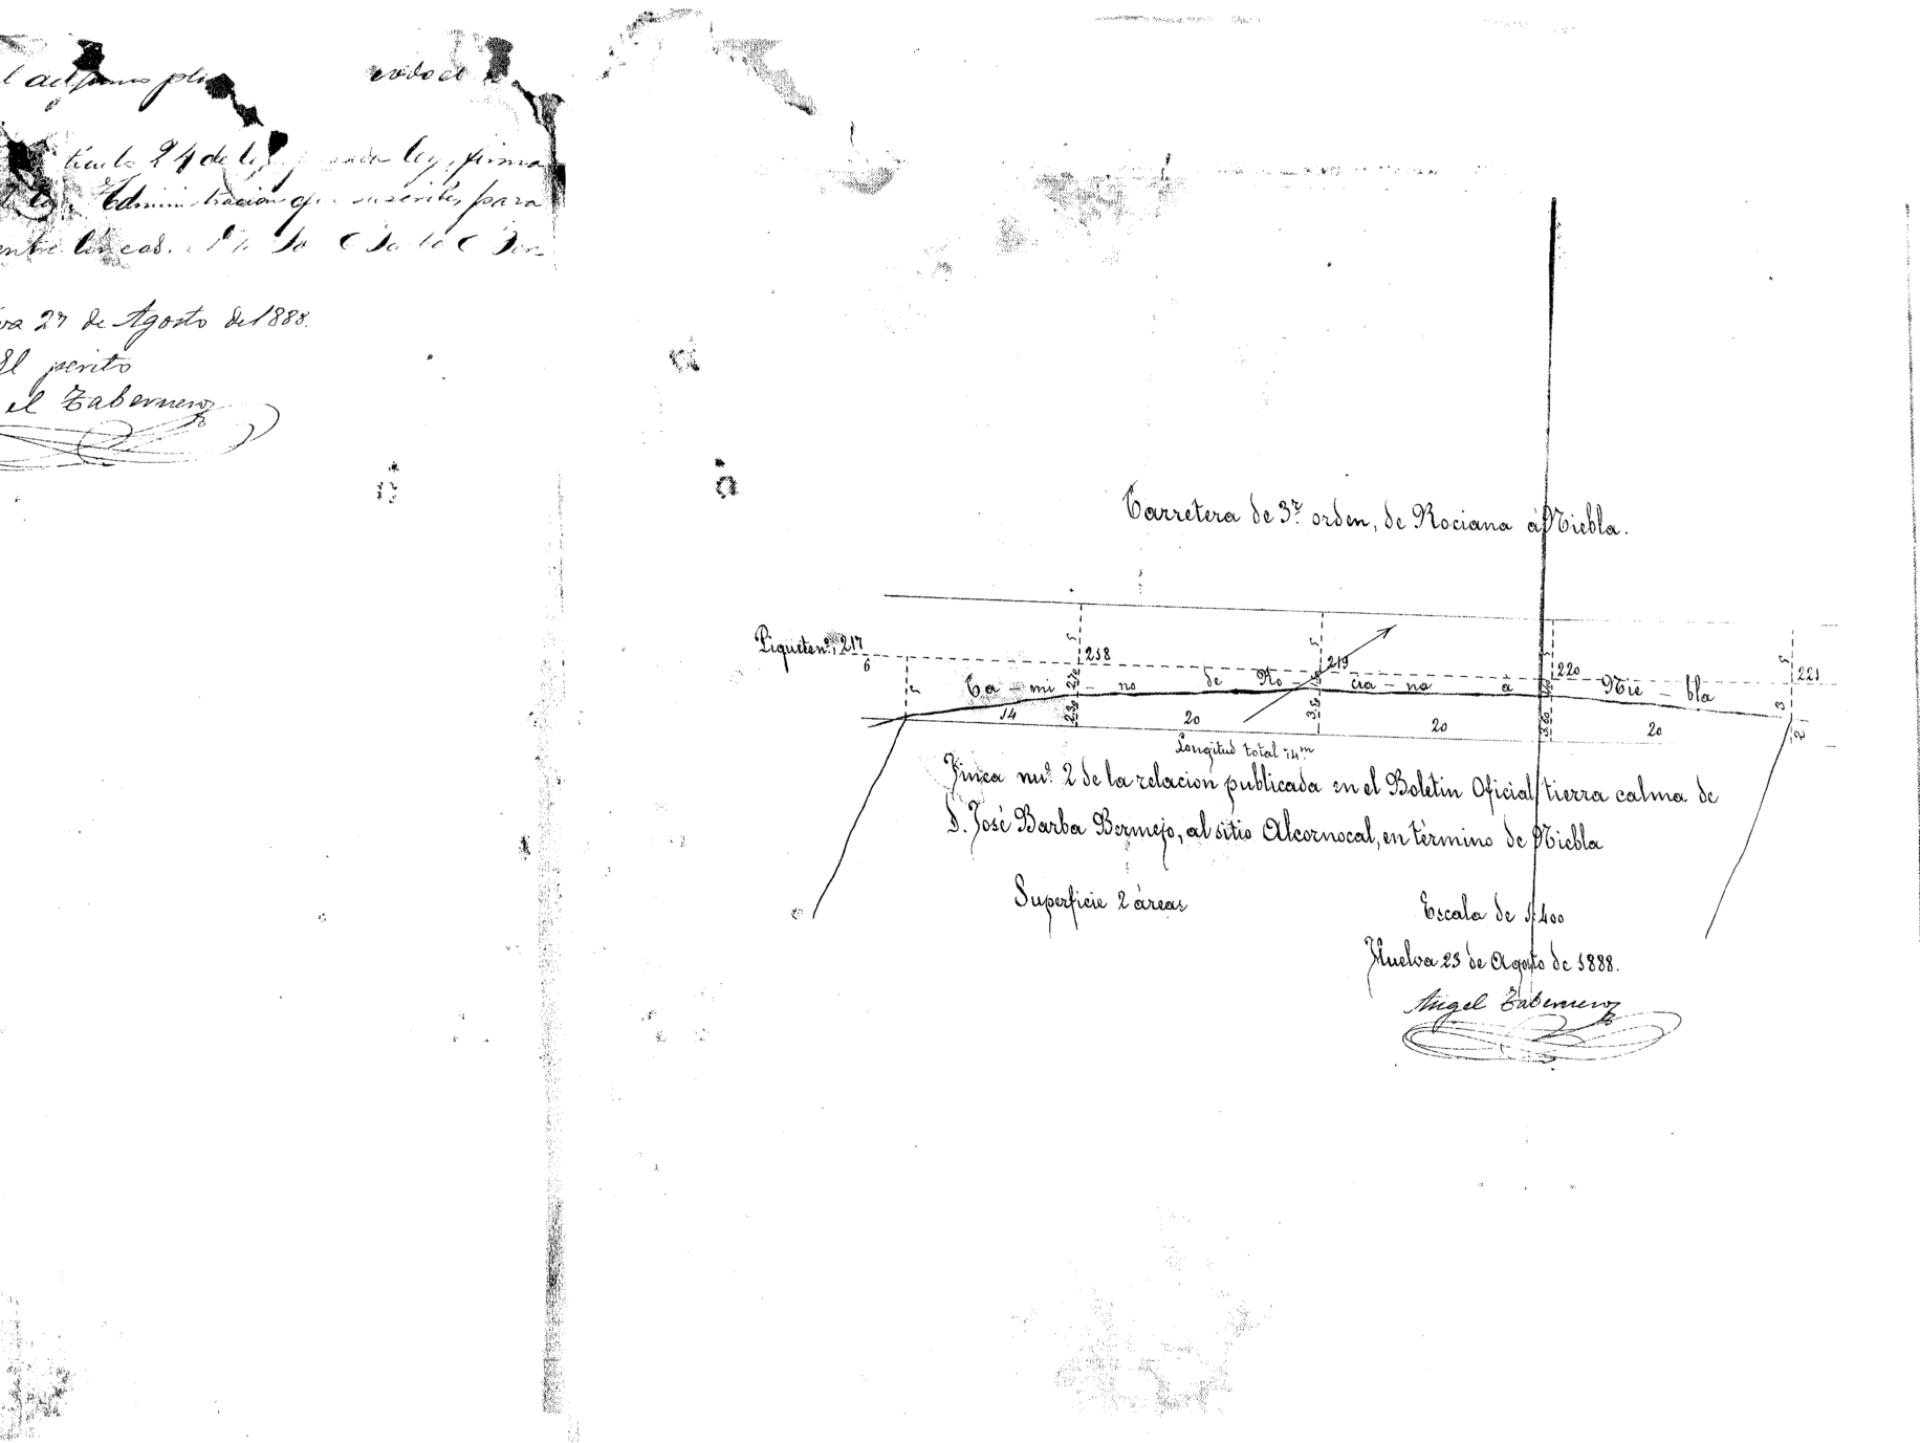 tículo 24 de la ley, firma
Administracion que suscribe, para
entre líneas.
27 de Agosto de 1888.
El perito
el Tabernero
Carretera de 3ʳ orden, de Rociana á Niebla.
Piquete nº. 217
218
219
220
221
6
5
5
5
5
Ca-mi-no de Ro-cia-na á Nie-bla
14
20
20
20
2,30
3,50
3,80
3
2
Longitud total 74ᵐ
Finca nuº. 2 de la relacion publicada en el Boletin Oficial, tierra calma de
D. José Barba Bermejo, al sitio Alcornocal, en término de Niebla
Superficie 2 áreas
Escala de 1:400
Huelva 23 de Agosto de 1888.
Angel Tabernero